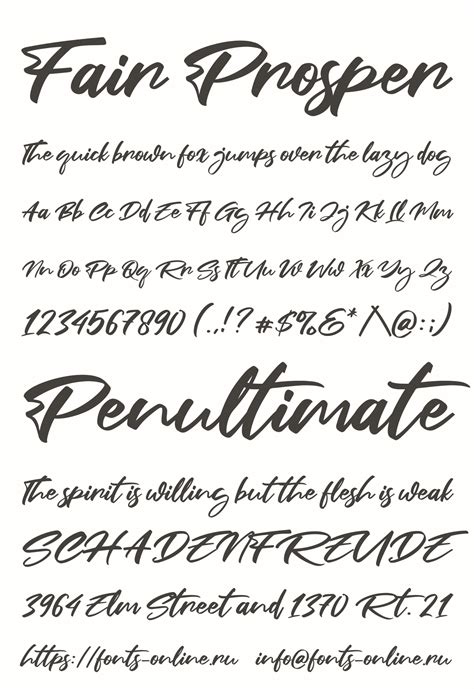 Fair Prosper
The quick brown fox jumps over the lazy dog
Aa Bb Cc Dd Ee Ff Gg Hh Ii Jj Kk Ll Mm
Nn Oo Pp Qq Rr Ss Tt Uu Vv Ww Xx Yy Zz
1234567890 (.,!? #$%&* /\@:;)
Penultimate
The spirit is willing but the flesh is weak
SCHADENFREUDE
3964 Elm Street and 1370 Rt. 21
https://fonts-online.ru info@fonts-online.ru